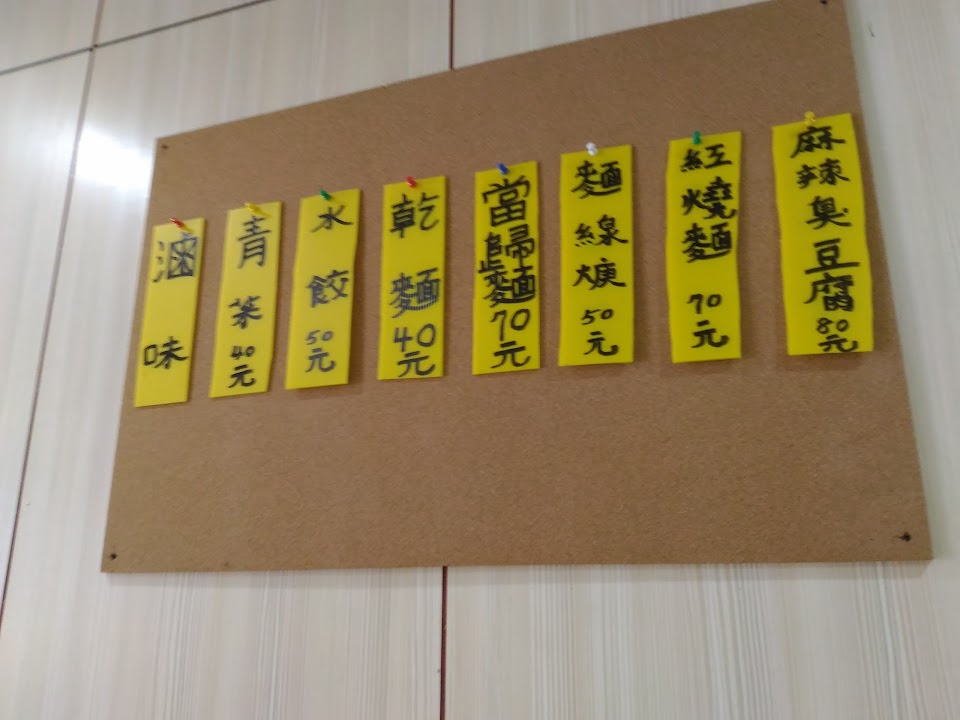 麻辣臭豆腐80元
紅燒麵70元
麵線焿50元
當歸麵70元
乾麵40元
水餃50元
青菜40元
滷味